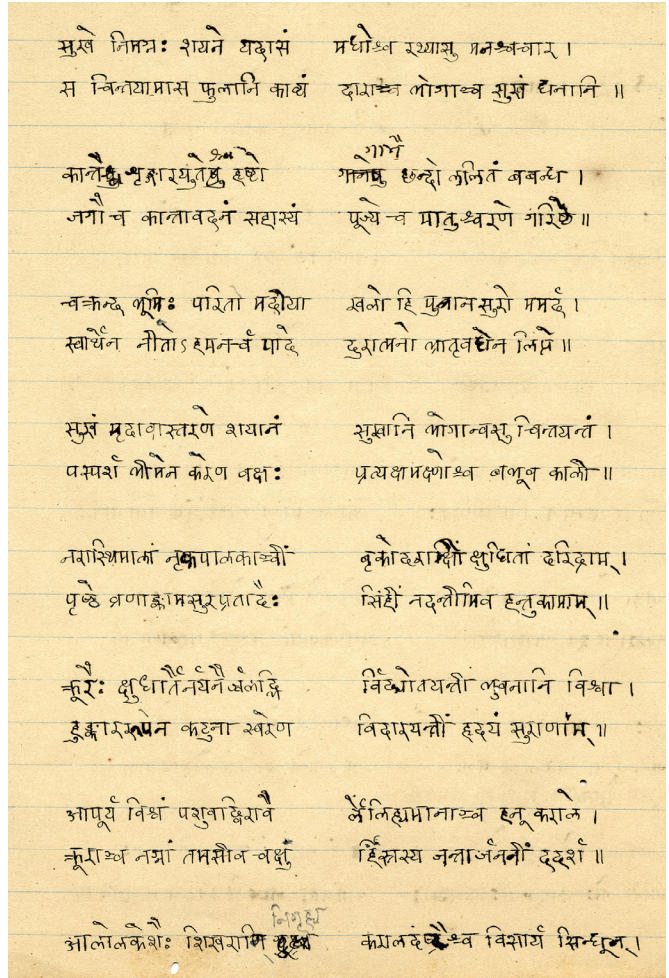 सुखे निमग्नः शयने यदासं मधोश्च रथ्यासु मनश्चचार ।
स चिन्तयामास कुलानि काव्यं दारांश्च भोगांश्च सुखं धनानि ॥
कान्तैश्च शृङ्गारयुतैश्च हृष्टो गानैश्च छन्दो ललितं बबन्ध ।
जगौ च कान्तावदनं सहास्यं पूज्ये च मातुश्चरणे गरिष्ठे ॥
चक्रन्द भूमिः परितो मदीया खलो हि पुत्रानसुरो ममर्द ।
स्वार्थेन नीतोऽहमनर्चं पादे दुरात्मनो भ्रातृवधेन लिप्ते ॥
सुखं मृदावास्तरणे शयानं सुखानि भोगान्वसु चिन्तयन्तं ।
पस्पर्श भीमेन करेण वक्षः प्रत्यक्षमक्ष्णोश्च बभूव काली ॥
नरास्थिमालां नृकपालकाञ्चीं वृकोदराक्षीं क्षुधितां दरिद्राम् ।
पृष्ठे व्रणाङ्कामसुरप्रतोदैः सिंहीं नदन्तीमिव हन्तुकामाम् ॥
क्रूरैः क्षुधार्तैर्नयनैर्ज्वलद्भि र्विद्योतयन्तीं भुवनानि विश्वा ।
हुङ्काररूपेन कटुना स्वरेण विदारयन्तीं हृदयं सुराणाम् ॥
आपूर्य विश्वं पशुवद्विरावै र्लेलिह्यमानाञ्च हनू कराले ।
क्रूराञ्च नग्नां तमसीव चक्षु र्हिंस्रस्य जन्तोर्जननीं ददर्श ॥
निगृह्य
आलोलकेशैः शिखरान् करालदंष्ट्रैश्च विसार्य सिन्धून् ।